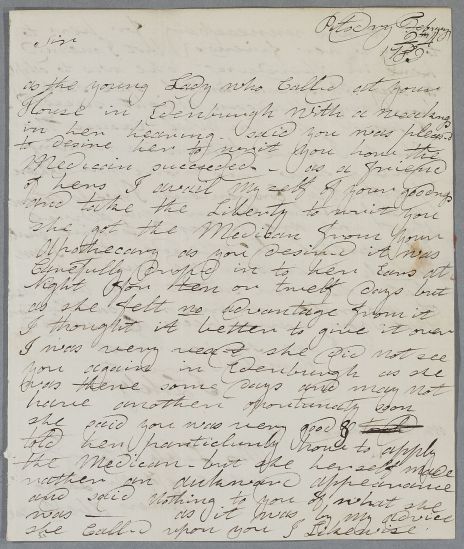 Febry
2d
Sir
as the young Lady who Called at your
House in Edenburgh with a weakness
in her hearing said you was pleasd
to desire her to writ you how the
Medicain succeeded - as a friend
of hers I avail my self of your goodness
and take the Liberty to writ you
she got the Medican from your
Apothecary as you desired it was
Carefully dropd in to her Ears at
Night for ten or twelf Days but
as she felt no advantage from it
I thought it better to give it over
I was very vexd she did not see
you again in Edenburgh as she
was there some Days and may not
have another oportunity soon
she said you was very good &
told her particularly how to apply
the Medican - but she herself made
rather an aukward appearance
and said nothing to you of what she
was — as it was by my advice
she Called upon you I Likewise